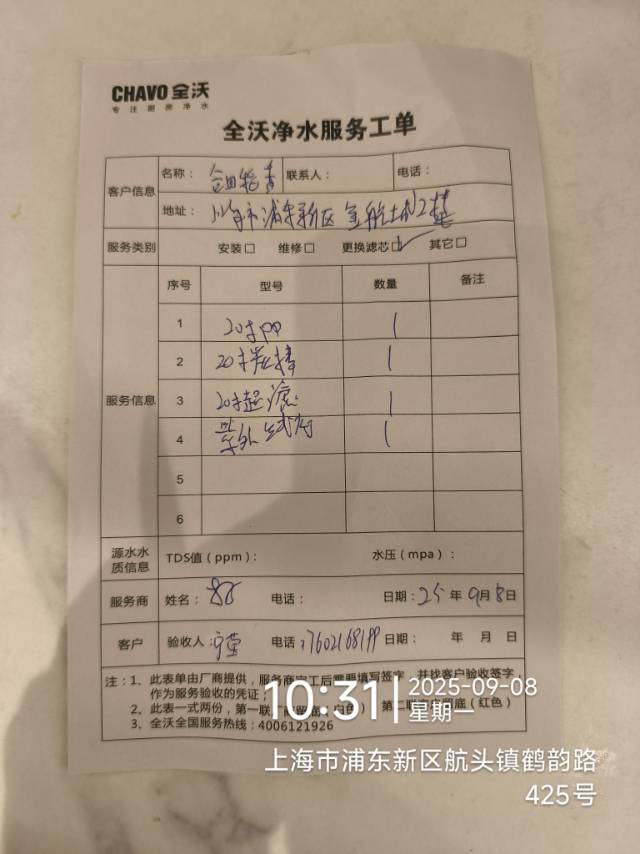 CHAVO 全沃
专注厨房净水
全沃净水服务工单
客户信息
名称：
联系人：
电话：
地址：上海市浦东新区
服务类别
安装□ 维修□ 更换滤芯□✓ 其它□
服务信息
序号 型号 数量 备注
1 20寸PP 1
2 20寸炭棒 1
3 20寸超滤 1
4 紫外线灯 1
5
6
源水水质信息
TDS值（ppm）： 水压（mpa）：
服务商 姓名： 电话： 日期：25年9月8日
客户 验收人： 电话： 日期： 年 月 日
注：1、此表单由厂商提供，服务商完工后需要填写签字，并找客户验收签字
作为服务验收的凭证；
2、此表一式两份，第一联 （白色） 第二联 底（红色）
3、全沃全国服务热线：4006121926
10:31
2025-09-08
星期一
上海市浦东新区航头镇鹤韵路
425号